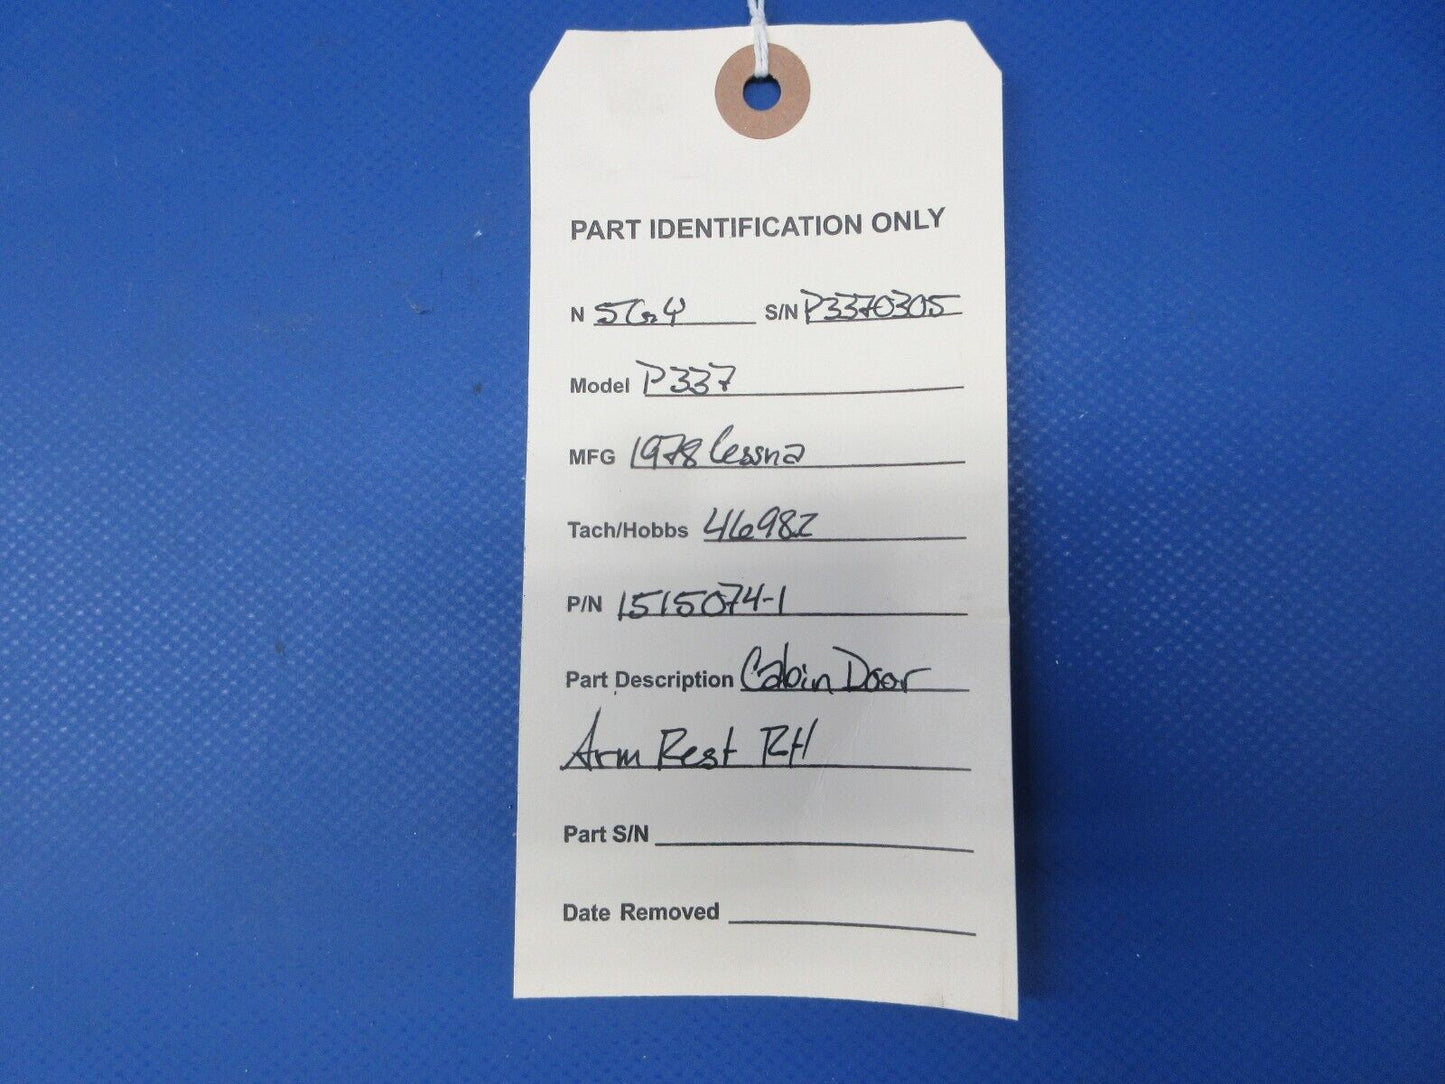 PART IDENTIFICATION ONLY
N 5GY S/N P3370305
Model P337
MFG 1978 Cessna
Tach/Hobbs 46982
P/N 1515074-1
Part Description Cabin Door
Arm Rest RH
Part S/N
Date Removed